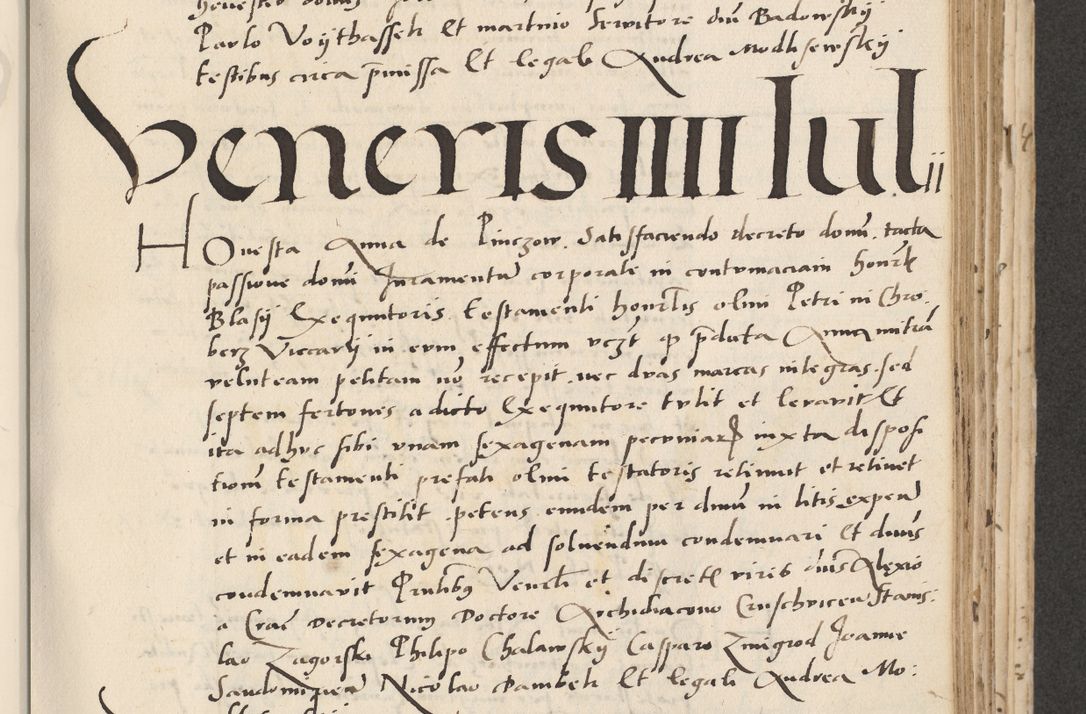 Pavlo Voijthassek Et martinio Servitore dni Badowskij
testibus circa pmissa Et legale Andrea Modlisewskij
Veneris IIII Iulii
Honesta Anna de Pinczow. Satisfaciendo decreto domi. tacta
passione domi Juramentu corporale in contumaciam honrl
Blasij Exequutoris testamenti honrlis olim Petri in Chro:
berz Viccarij in eum effectum vczt q pdicta Anna mitra
veluteam pelitam no recepit. nec duas marcas integras. sed
septem fertones a dicto Exequutore tulit et levavit Et
ita adhuc sibi unam sexagenam pecuniar iuxta disposi
tiom testamenti prefati olim testatoris retinuit et retinet
in forma prestitit. petens eundem per dmu in litis expen
et in eadem sexagena ad solvendum condemnari Et dnus
condemnavit Pntibus Veneli et discretl viris dnis Alexio
a Crac Decretorum Doctore Archidiacono Cruschvicen Stanis:
lao Zagorski Philipo Chalawskij Casparo Zmigrod Joanne
Sandomirien Nicolao Dambek Et legali Andrea Mo: